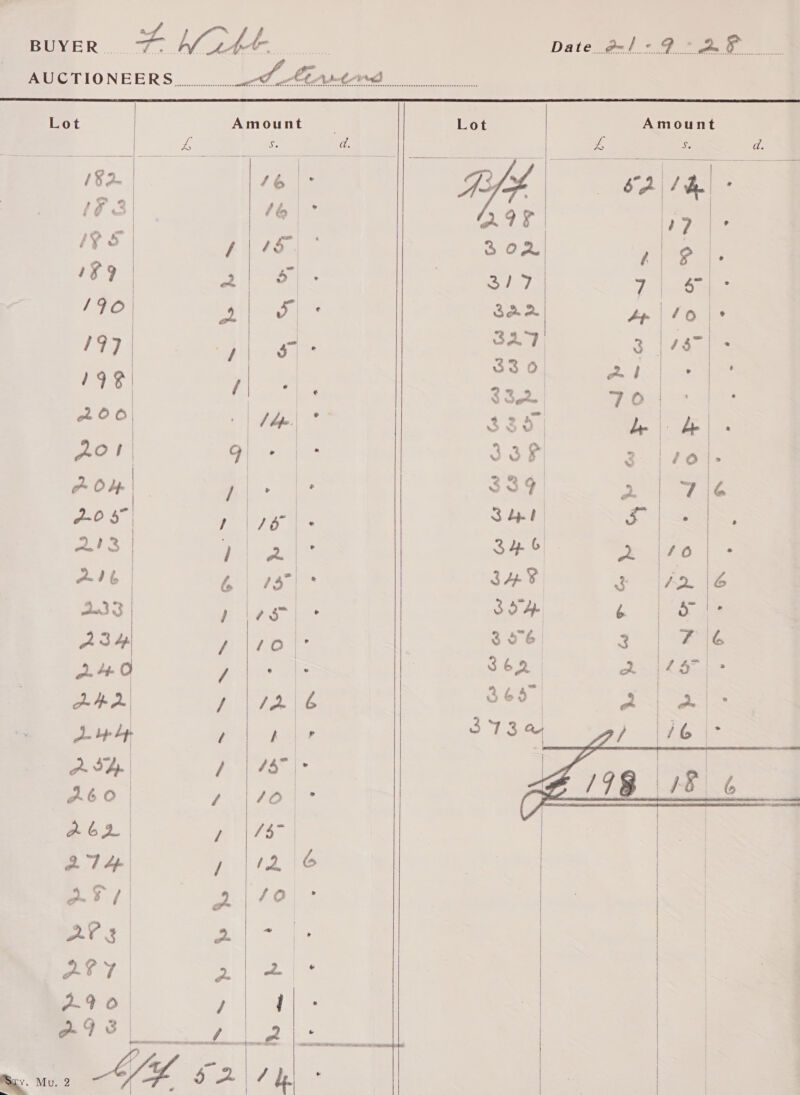 BUYER F. Webb Date 21-9-28
AUCTIONEERS Stevens
Lot Amount
£ s. d.
182 16 -
183 16 -
185 1 15 -
189 2 5 -
190 2 5 -
197 1 5 -
198 1 - -
200 - 14 -
201 9 - -
204 1 - -
205 1 15 -
213 1 2 -
216 6 15 -
233 1 15 -
234 1 10 -
240 1 - -
242 1 12 6
244 1 1 -
254 1 15 -
260 1 10 -
262 1 15
274 1 12 6
281 2 10 -
283 2 - -
287 2 2 -
290 1 1 -
293 1 2 -
C/F 52 14 -
Sty. Mu. 2
Lot Amount
£ s. d.
B/F. 52 14 -
298 17 -
302 1 8 -
317 7 5 -
322 4 10 -
327 3 15 -
330 21 - -
332 70 - -
335 4 4 -
338 3 10 -
339 2 7 6
341 5 - -
346 2 10 -
348 3 12 6
354 6 5 -
356 3 7 6
362 2 15 -
365 2 2 -
373a 1 16 -
£ 198 18 6